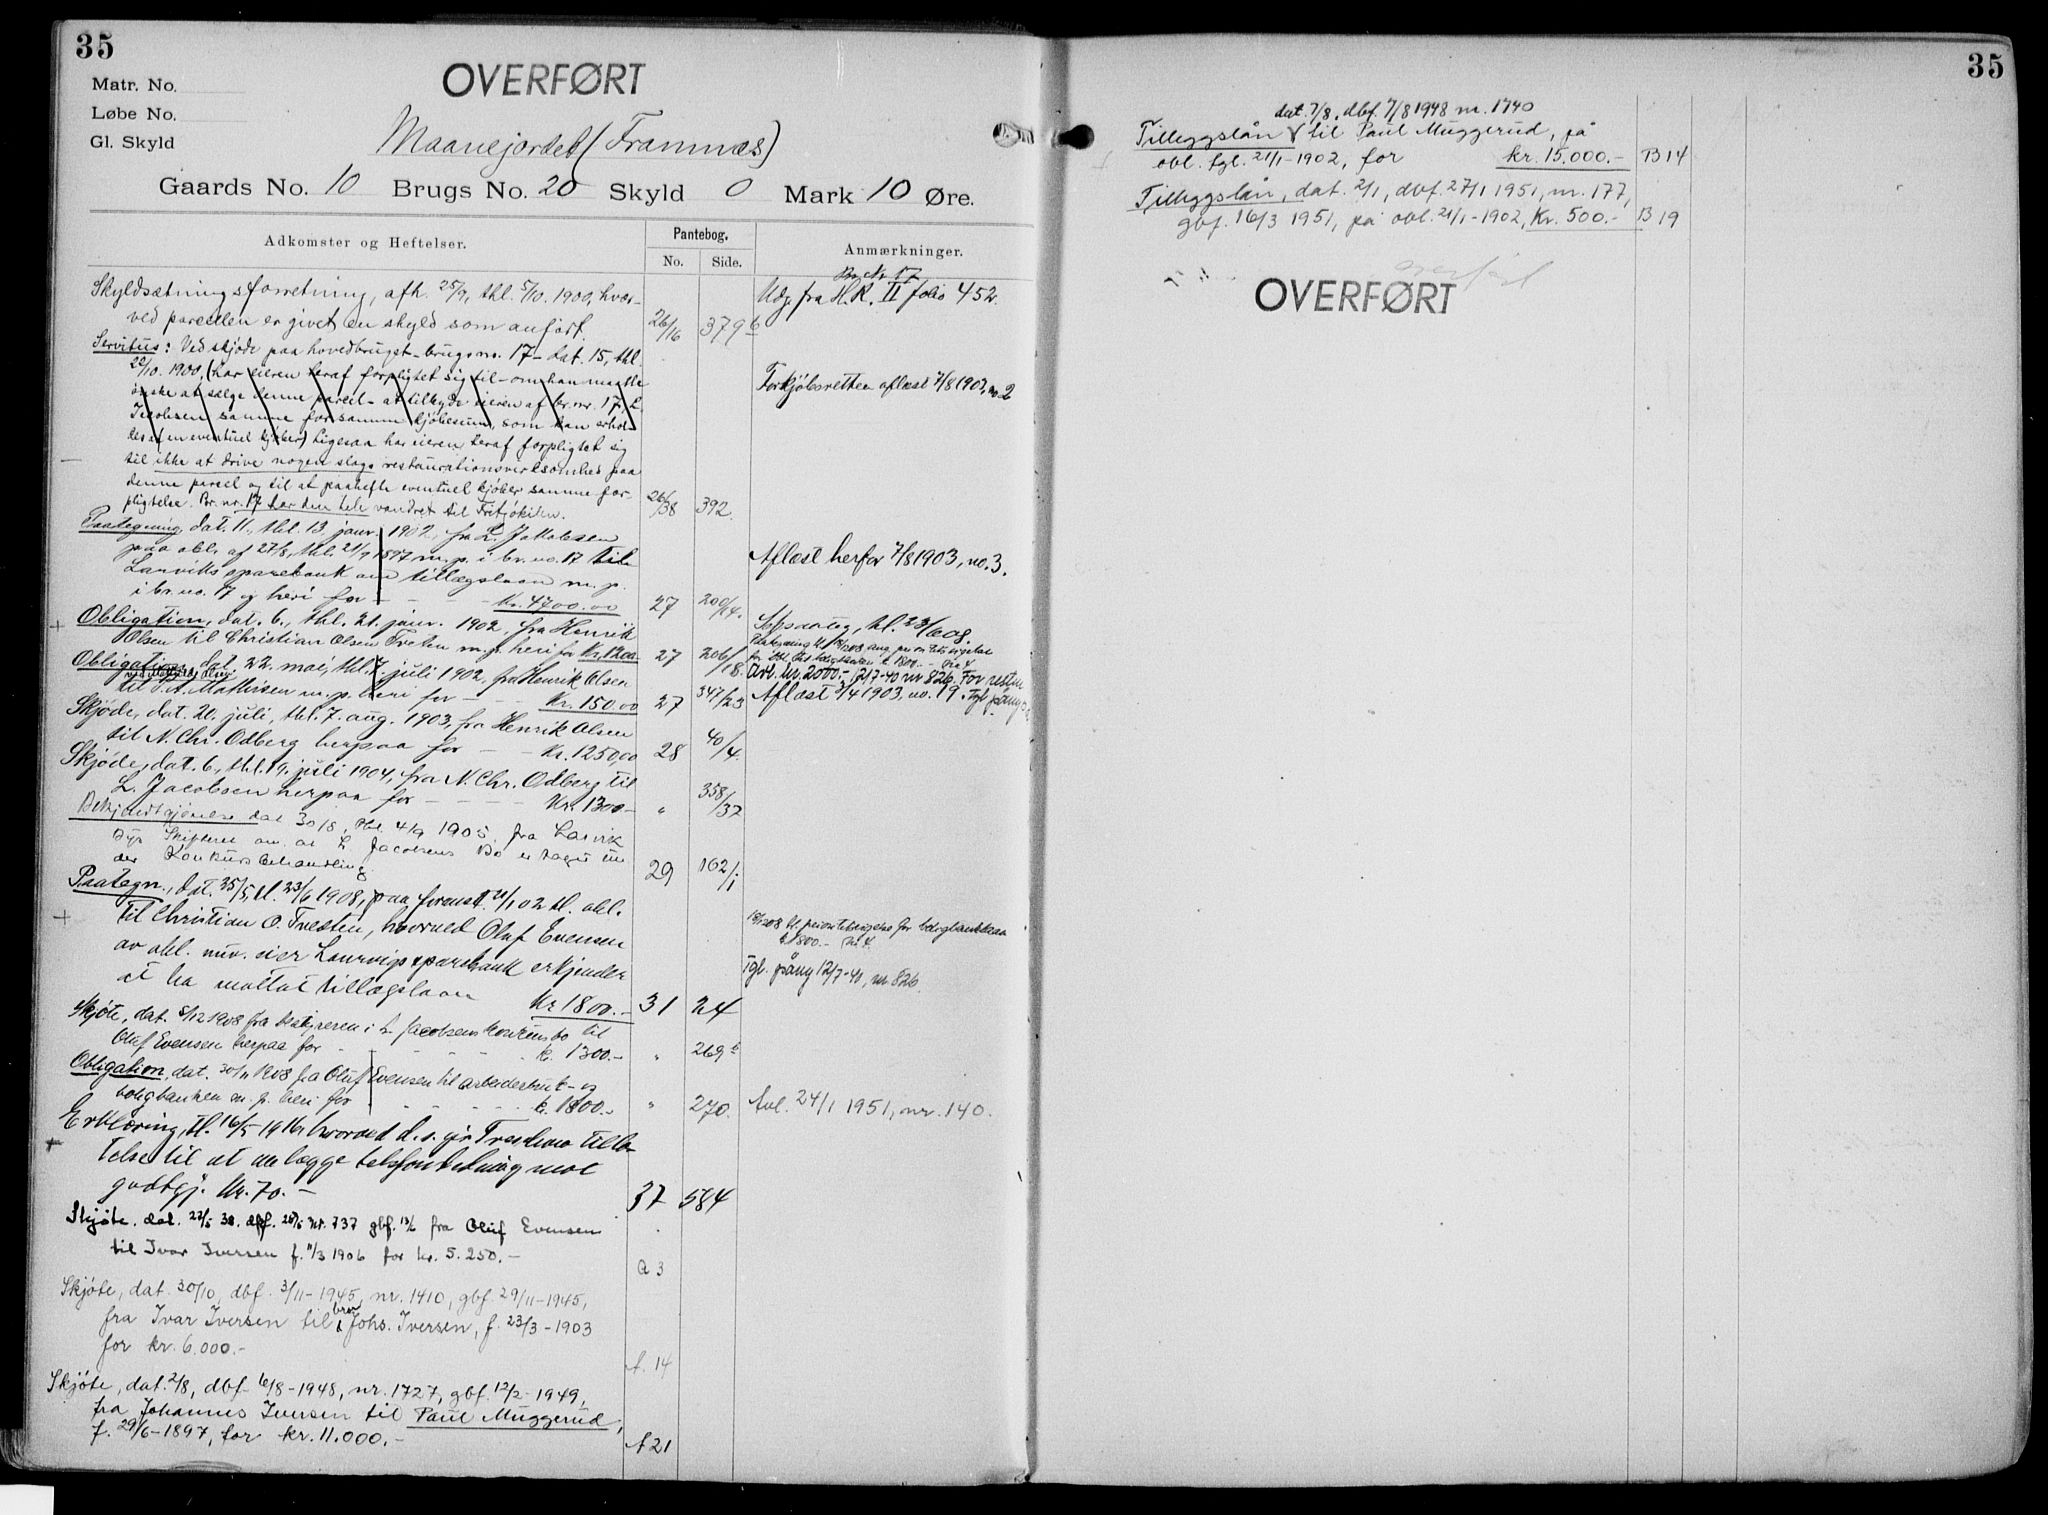 35
Matr. No.
Løbe No.
Gl. Skyld
OVERFØRT
Maanejordet (Framnæs)
Gaards No. 10 Brugs No. 20 Skyld 0 Mark 10 Øre.
Adkomster og Heftelser.
Pantebog.
No. Side.
Anmærkninger.
Skyldsætningsforretning, afh. 25/9, thl. 5/10. 1900, hvor-
ved parcellen er givet en skyld som anført. 26/16 379b
Br. Nr 17
Udg. fra H.R. II folio 452.
Servitus: Ved skjøde paa hovedbruget - brugsno. 17 - dat. 15, thl.
22/10. 1900, (har eieren heraf forpligtet sig til - om han maatte
ønske at sælge denne parcel - at tilbyde eieren af br. nr. 17, L.
Jacobsen samme for samme kjøbesum, som kan erhol-
des af en eventuel kjøber) Ligesaa har eieren heraf forpligtet sig
til ikke at drive nogen slags restaurationsvirksomhed paa
denne parcel og til at paahefte eventuel kjøber samme for-
pligtelse. Br. nr. 17 har den hele vandret til 26/38 392.
Forkjøbsretten aflæst 7/8 1903, no 2
Paategning, dat. 11, thl. 13 janr. 1902, fra L. Jakobsen
paa obl. af 27/8, thl. 21/9 1897 m. p. i br. no. 17 til
Larviks sparebank om tillægslaan m. p.
i br. no. 17 og heri for - - - Kr. 4700.00 27 209/14.
Aflæst herfor 7/8 1903, no. 3.
Obligation, dat. 6., thl. 21. janr. 1902, fra Henrik
Olsen til Christian Olsen Tveten m. p. heri for Kr. 1200 27 206/18.
23/6 08.
Avl. kr. 2000.- 12/7-40 nr 826. For resten
Obligation, dat. 22. mai, thl. 7. juli 1902, fra Henrik Olsen
til P. A. Mathisen m. p. heri for - - Kr. 150.00 27 347/23
Aflæst 3/4 1903, no. 19. Tgl. påny
Skjøde, dat. 20. juli, thl. 7. aug. 1903, fra Henrik Olsen
til N. Chr. Odberg herpaa for - - Kr. 1250,00 28 40/4.
Skjøde, dat. 6., thl. 19. juli 1904, fra N. Chr. Odberg til
L. Jacobsen herpaa for - - - - Kr. 1300 - " 358/37
Bekjendtgjørelse dat 30/8, thl. 4/9 1905, fra Larvik
Byr Skifteret om at L. Jacobsens Bo er taget un
der Konkursbehandling 29 162/1
Paategn., dat. 25/5, tl. 23/6 1908, paa foranst. 21/1 02 tl. obl.
til Christian O. Tvesten, hvorved Oluf Evensen
av obl. nuv. eier Laurvigs sparebank erkjender
at ha mottat tillægslaan Kr 1800.- 31 24
18/12 08 tl. prioritetsvigelse for boligbanklaan
k. 1800.- No 4.
Tgl. påny 12/7-40, nr 826.
Skjøte, dat. 8/12 1908 fra bestyreren i L. Jacobsens konkursbo til
Oluf Evensen herpaa for - - - k. 1300.- " 269b
Obligation, dat. 30/11 1908 fra Oluf Evensen til arbeiderbruk- og
boligbanken m. p. heri for - - - k. 1800.- " 270.
Avl. 24/1 1951, nr. 140.
Erklæring, tl. 16/5 1916, hvorved d. s. gir tilla-
telse til at anlægge telefonledning mot
godtgj. Kr. 70. - 37 584
Skjøte, dat. 27/5 38. dbf. 28/5 Nr. 737 gbf. 13/6 fra Oluf Evensen
til Ivar Iversen f. 11/3 1906 for kr. 5.250.- A 3
Skjøte, dat. 30/10, dbf. 3/11-1945, nr. 1410, gbf. 29/11-1945,
fra Ivar Iversen til bror Johs. Iversen, f. 23/3-1903
for kr. 6.000.- A. 14
Skjøte, dat. 2/8, dbf. 6/8-1948, nr. 1727, gbf. 12/2-1949,
fra Johannes Iversen til Paul Muggerud,
f. 29/6-1897, for kr. 11.000.- A 21
35
dat. 7/8, dbf. 7/8 1948 nr. 1740
Tilleggslån til Paul Muggerud, på
obl. tgl. 21/1-1902, for kr. 15.000.- B 14
Tilleggslån, dat. 2/1, dbf. 27/1 1951, nr. 177,
gbf. 16/3 1951, på obl. 21/1-1902, Kr. 500.- B 19
OVERFØRT